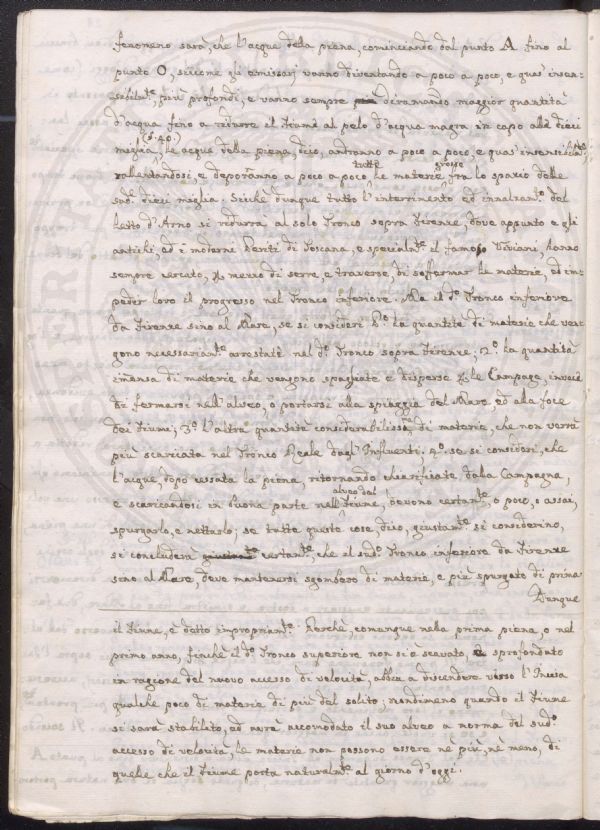 fenomeno sarà, che l'acque della piena, cominciando dal punto A fino al
punto O, siccome gli emissarj vanno diventando a poco a poco, e quasi insen=
sibilm.te, più profondi, e vanno sempre diramando maggior quantità
d'acqua fino a ridurre il Fiume al pelo d'acqua magra in capo alle dieci
miglia (§.40.) Le acque della piena, dico, andranno a poco a poco, e quasi insensibilm.te
rallentandosi, e deporranno a poco a poco tutte le materie grosse fra lo spazio delle
sud.e dieci miglia. Sicchè dunque tutto l'interrimento ed innalzam.to del
letto d'Arno si ridurrà al solo Tronco sopra Firenze, dove appunto e gli
antichi, ed i moderni Periti di Toscana, e specialm.te il famoso Viviani, hanno
sempre cercato, per mezzo di serre, e traverse, di soffermar le materie, ed im=
peder loro il progresso nel Tronco inferiore. Ma il d.o Tronco inferiore
da Firenze sino al Mare, se si consideri P.o La quantità di materie che ven=
gono necessariam.te arrestate nel d.o Tronco sopra Firenze; 2.o La quantità
immensa di materie che vengono spagliate e disperse per le Campagne, invece
di fermarsi nell'alveo, o portarsi alla spiaggia del Mare, ed alla foce
dei Fiumi; 3.o L'altra quantità considerabilissima di materie, che non verrà
più scaricata nel Tronco Reale dagl'Influenti; 4.o se si consideri, che
l'acque, dopo cessata la piena, ritornando chiarificate dalla Campagna,
e scaricandosi in buona parte nell'alveo del Fiume, devono certam.te, o poco, o assai,
spurgarlo, e nettarlo; se tutte queste cose, dico, giustam.te si considerino,
si concluderà certam.te, che il sud.o Tronco inferiore da Firenze
sino al Mare, deve mantenersi sgombero di materie, e più spurgato di prima.
Dunque
il Fiume, è detto impropriam.te. Perchè, comunque nella prima piena, o nel
primo anno, finchè il d.o Tronco superiore non si è scavato, e sprofondato
in ragione del nuovo accesso di velocità, abbia a discendere verso l'Incisa
qualche poco di materie di più del solito; nondimeno quando il Fiume
si sarà stabilito, ed avrà accomodato il suo alveo a norma del sud.o
accesso di velocità, le materie non possono essere nè più, nè meno, di
quelle che il Fiume porta naturalm.te al giorno d'oggi.